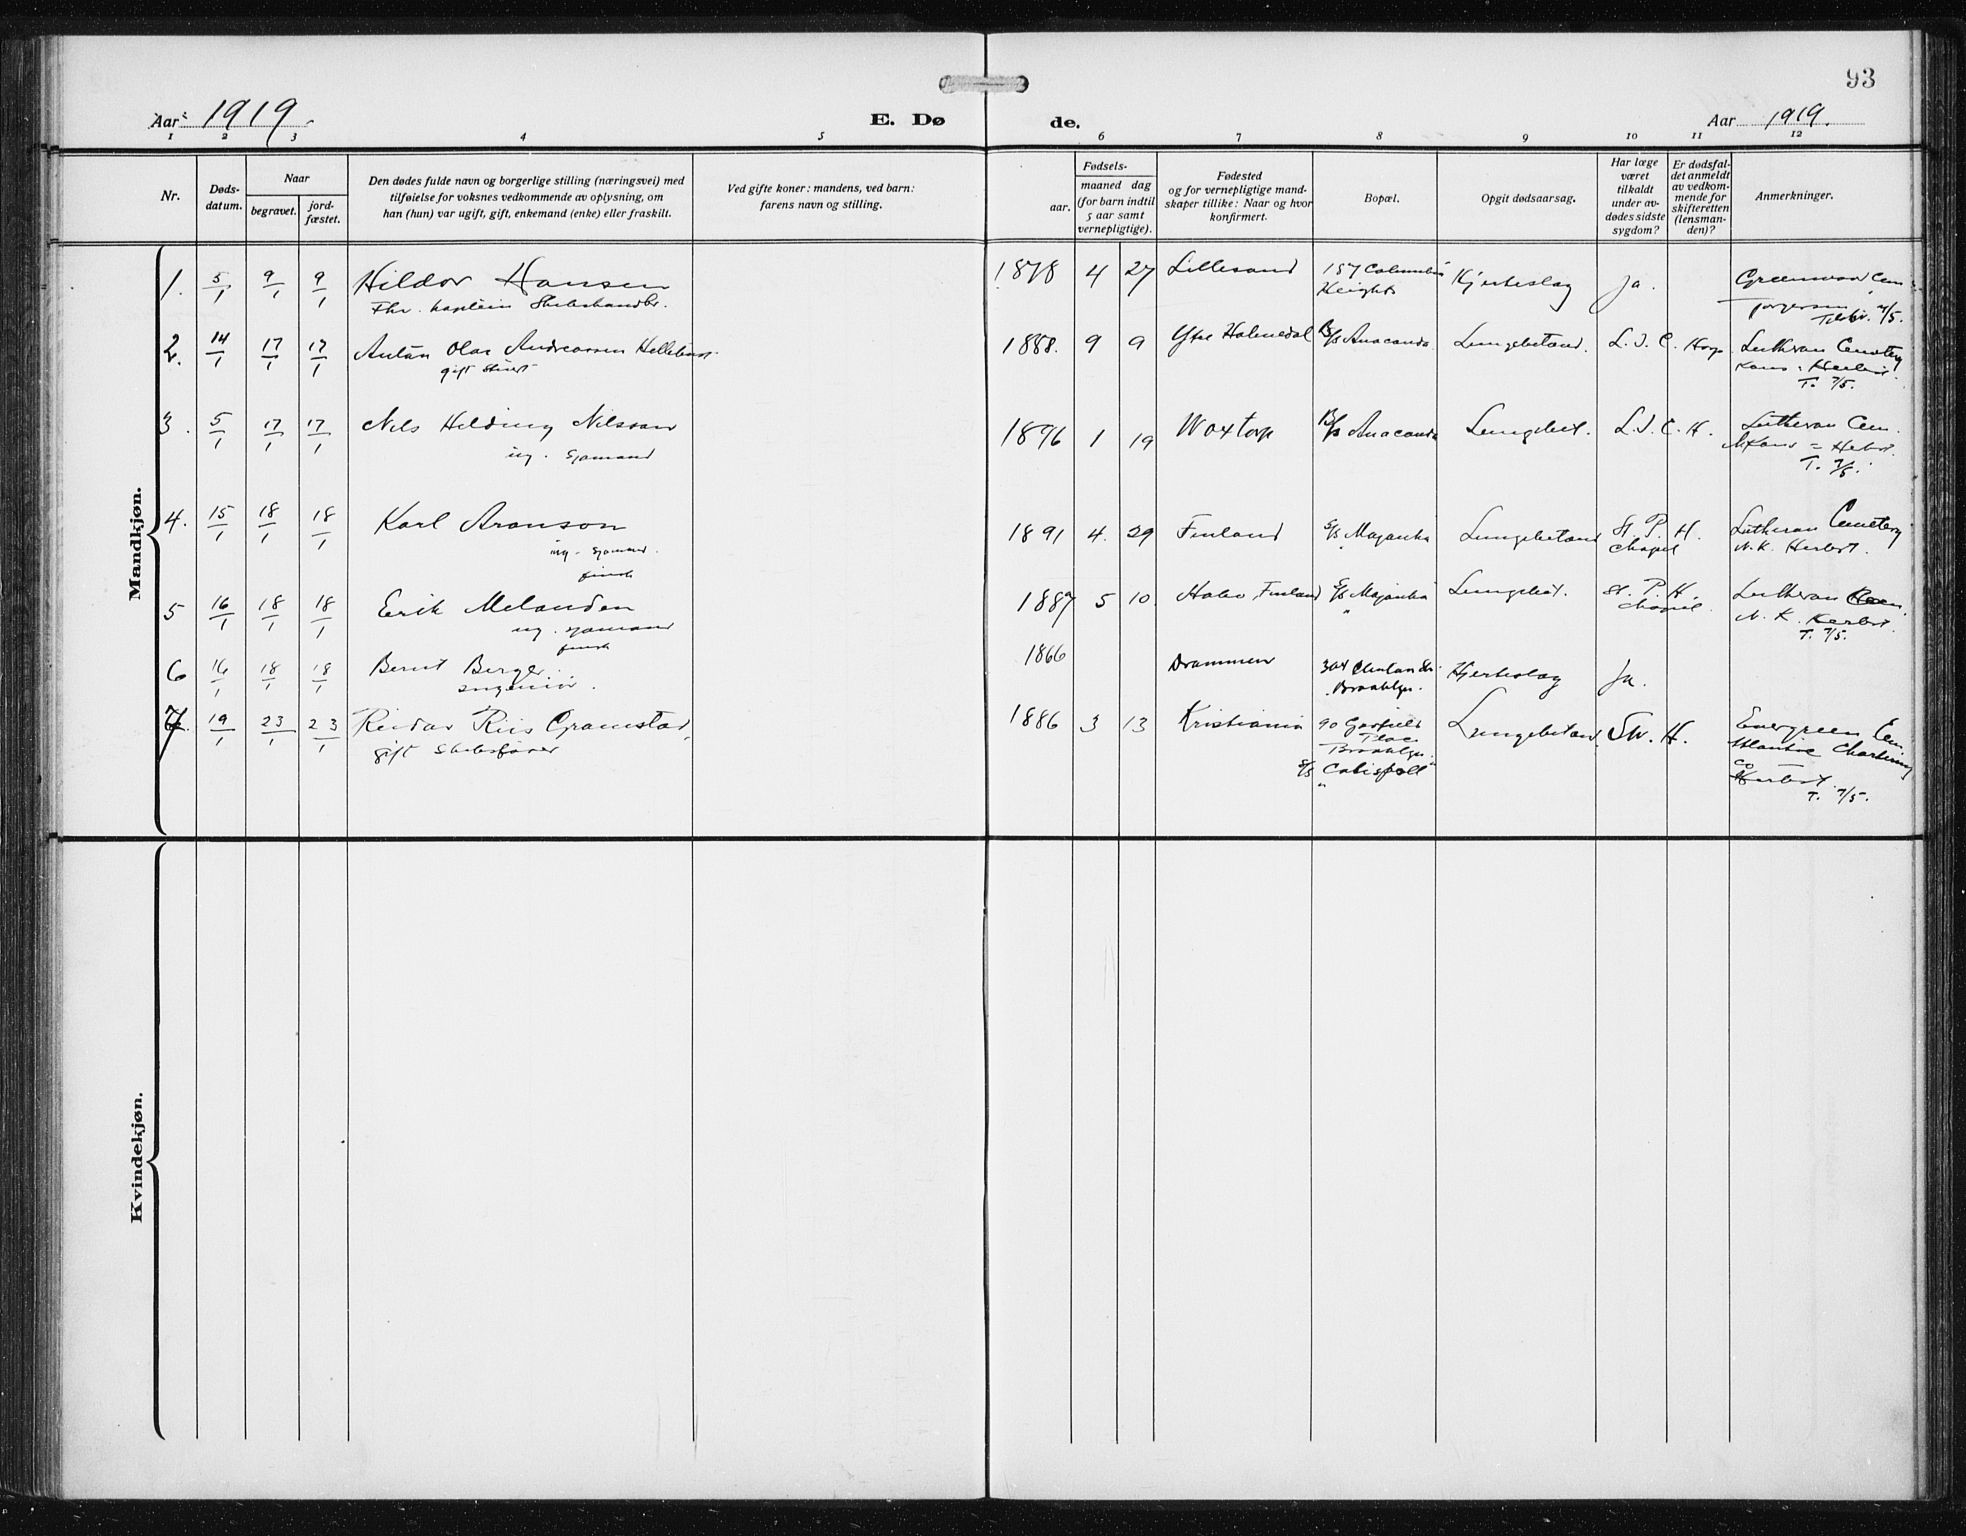 93
Aar 1919. E. Døde. Aar 1919.
1 2 3 4 5 6 7 8 9 10 11 12
Nr.
Døds-
datum.
Naar
begravet.
jord-
fæstet.
Den dødes fulde navn og borgerlige stilling (næringsvei) med
tilføielse for voksnes vedkommende av oplysning, om
han (hun) var ugift, gift, enkemand (enke) eller fraskilt.
Ved gifte koner: mandens, ved barn:
farens navn og stilling.
Fødsels-
aar.
maaned dag
(for barn indtil
5 aar samt
vernepligtige).
Fødested
og for vernepligtige mand-
skaper tillike: Naar og hvor
konfirmert.
Bopæl.
Opgit dødsaarsag.
Har læge
været
tilkaldt
under av-
dødes sidste
sygdom?
Er dødsfal-
det anmeldt
av vedkom-
mende for
skifteretten
(lensman-
den)?
Anmerkninger.
Mandkjøn.
1. 5/1 9/1 9/1 Hildor Hansen 1878 4 27 Lillesand 157 Columbia Hjerteslag Ja. Greenwood Cem
Fhv. kaptein Heights
7/5.
2. 14/1 17/1 17/1 Anton Olai Andreassen 1888. 9 9 Ytre Holmedal B/s Anaconda. Lungebetænd. L. I. C. Hosp. Lutheran Cemetery
gift T. 7/5.
3. 5/1 17/1 17/1 Nils Hilding Nilsson 1896 1 19 Woxtorp B/s Anaconda Lungebet. L. I. C. H. Lutheran Cem.
ug. Sjømand T. 7/5.
4. 15/1 18/1 18/1 Karl Aronson 1891 4. 29 Finland Lungebetænd St. P. H. Lutheran Cemetery
ug. sjømand. Chapel N. K. Herbst.
finsk
5 16/1 18/1 18/1 Erik Melanden 1887 5 10. Finland Lungebet. St. P. H. Lutheran Cem.
ug. sjømand Chapel. N. K. Herbst.
finsk T. 7/5.
6 16/1 18/1 18/1 Bernt Berger. 1866 Drammen 304 Clinton Str. Hjerteslag Ja.
Ingeniør. Brooklyn.
7 19/1 23/1 23/1 Reidar Riis Gramstad, 1886 3 13 Kristiania 90 Garfield Lungebetænd. Sw. H. Evergreen Cem.
gift Skibsfører Place Atlantic Chartering
Brooklyn. Co
S/s Herbst.
T. 7/5.
Kvindekjøn.